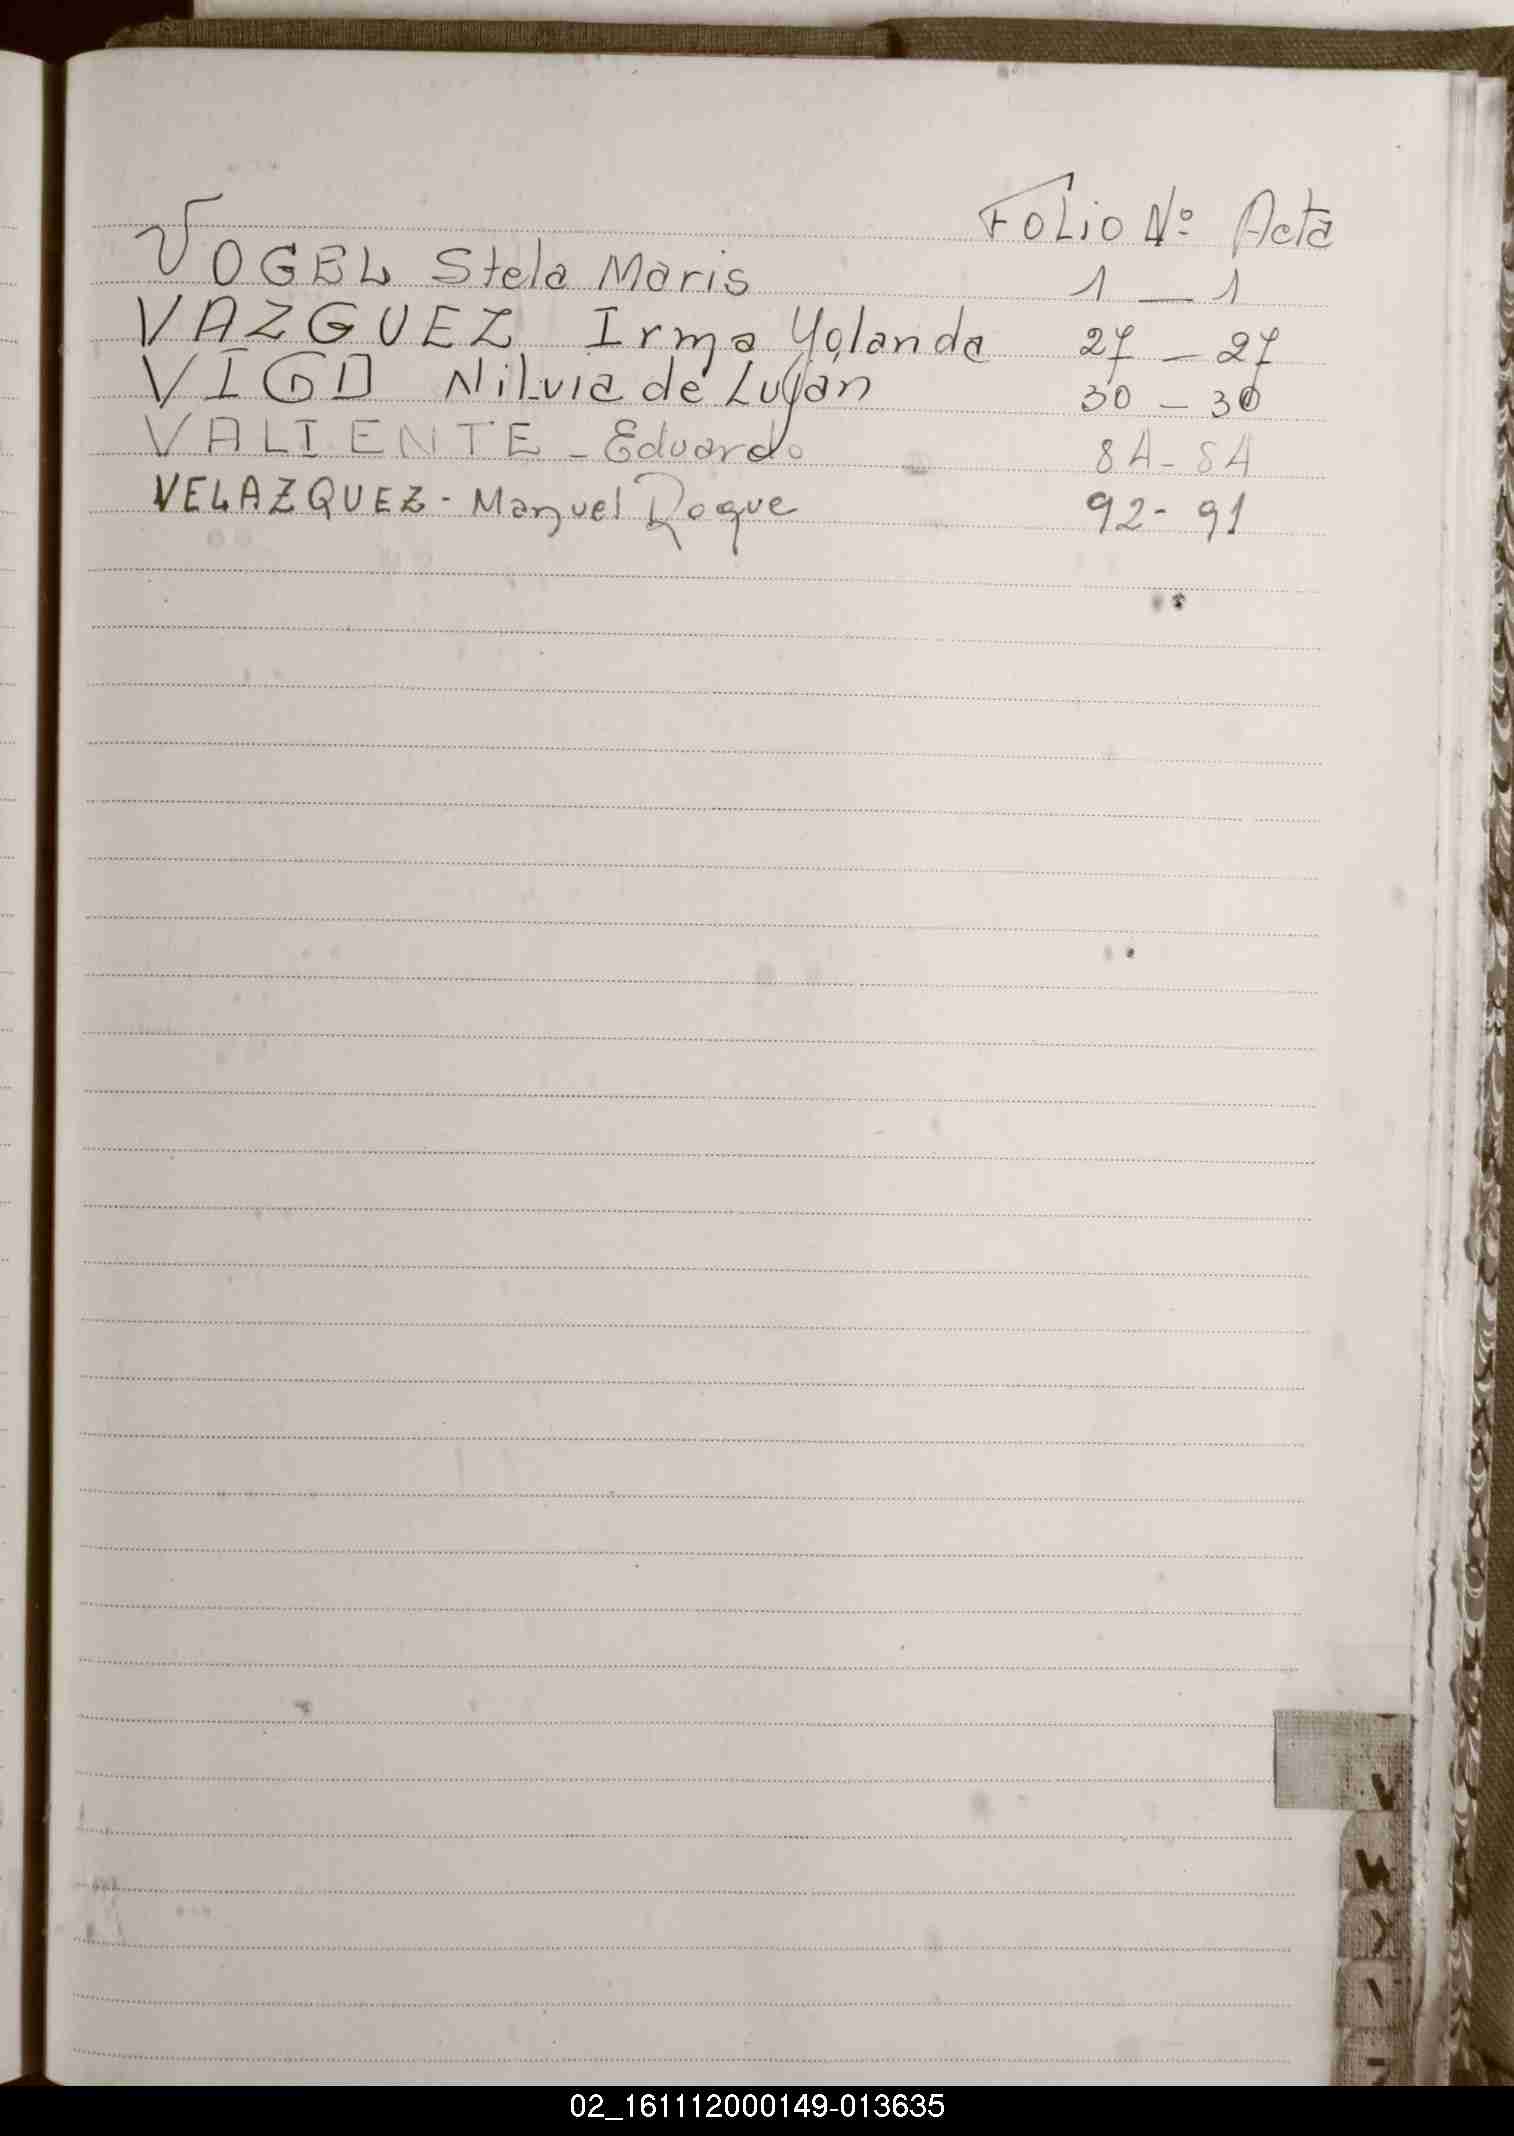 Folio Nº Acta
VOGEL Stela Maris 1 — 1
VAZGUEZ Irma Yolanda 27 — 27
VIGO Nilvia de Lujan 30 — 30
VALIENTE - Eduardo 84 - 84
VELAZQUEZ - Manuel Roque 92 - 91
V
02_161112000149-013635